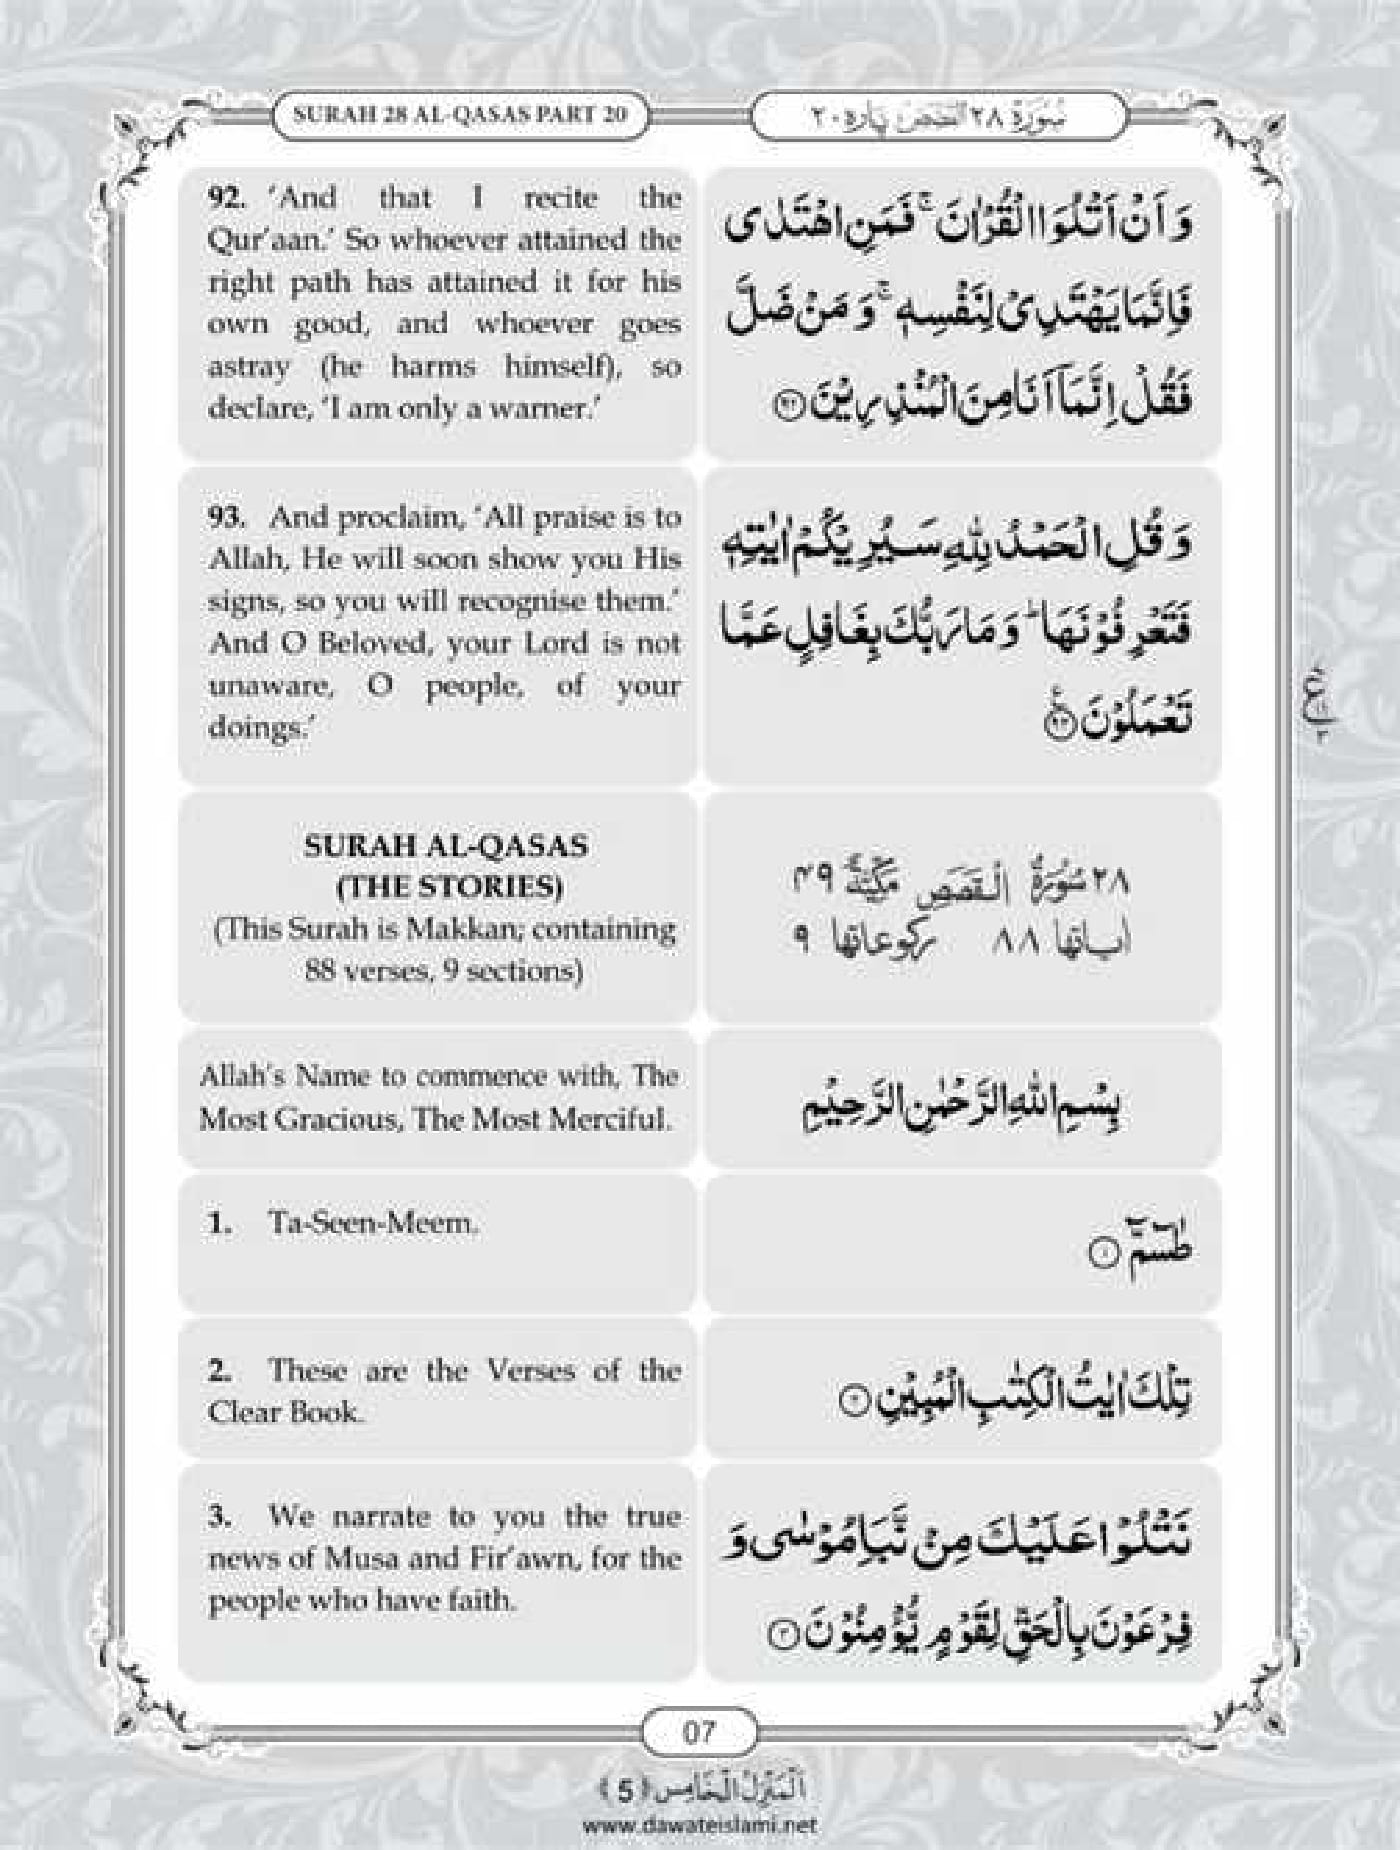 SURAH 28 AL-QASAS PART 20
سُوْرَةُ ٢٨ القصص پارہ ٢٠
92. ‘And that I recite the
Qur’aan.’ So whoever attained the
right path has attained it for his
own good, and whoever goes
astray (he harms himself), so
declare, ‘I am only a warner.’
وَ اَنْ اَتْلُوَا الْقُرْاٰنَ ۚ فَمَنِ اهْتَدٰى
فَاِنَّمَا یَهْتَدِیْ لِنَفْسِهٖ ۚ وَ مَنْ ضَلَّ
فَقُلْ اِنَّمَاۤ اَنَا مِنَ الْمُنْذِرِیْنَ ﴿٩٢﴾
93. And proclaim, ‘All praise is to
Allah, He will soon show you His
signs, so you will recognise them.’
And O Beloved, your Lord is not
unaware, O people, of your
doings.’
وَ قُلِ الْحَمْدُ لِلّٰهِ سَیُرِیْكُمْ اٰیٰتِهٖ
فَتَعْرِفُوْنَهَا ؕ وَ مَا رَبُّكَ بِغَافِلٍ عَمَّا
تَعْمَلُوْنَ ﴿٩٣﴾
SURAH AL-QASAS
(THE STORIES)
(This Surah is Makkan; containing
88 verses, 9 sections)
٢٨ سُوْرَةُ الْقَصَصِ مَكِّیَّةٌ ٤٩
اٰیاتها ٨٨ ركوعاتها ٩
Allah’s Name to commence with, The
Most Gracious, The Most Merciful.
بِسْمِ اللّٰهِ الرَّحْمٰنِ الرَّحِیْمِ
1. Ta-Seen-Meem.
طٰسٓمّٓ ﴿١﴾
2. These are the Verses of the
Clear Book.
تِلْكَ اٰیٰتُ الْكِتٰبِ الْمُبِیْنِ ﴿٢﴾
3. We narrate to you the true
news of Musa and Fir’awn, for the
people who have faith.
نَتْلُوْا عَلَیْكَ مِنْ نَّبَاِ مُوْسٰى وَ
فِرْعَوْنَ بِالْحَقِّ لِقَوْمٍ یُّؤْمِنُوْنَ ﴿٣﴾
07
اَلْمَنْزِلُ الْخَامِس ﴿5﴾
www.dawateislami.net